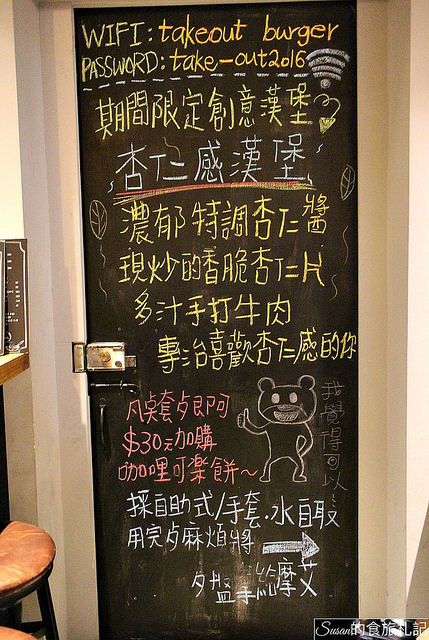 WIFI: takeout burger
PASSWORD: take-out2016
期間限定創意漢堡
杏仁感漢堡
濃郁特調杏仁醬
現炒的香脆杏仁片
多汁手打牛肉
專治喜歡杏仁感的你
我覺得可以
凡桌套歺即可
$30元加購
咖哩可樂餅～
採自助式/手套.水自取
用完歺麻煩將
Susan的食旅札記